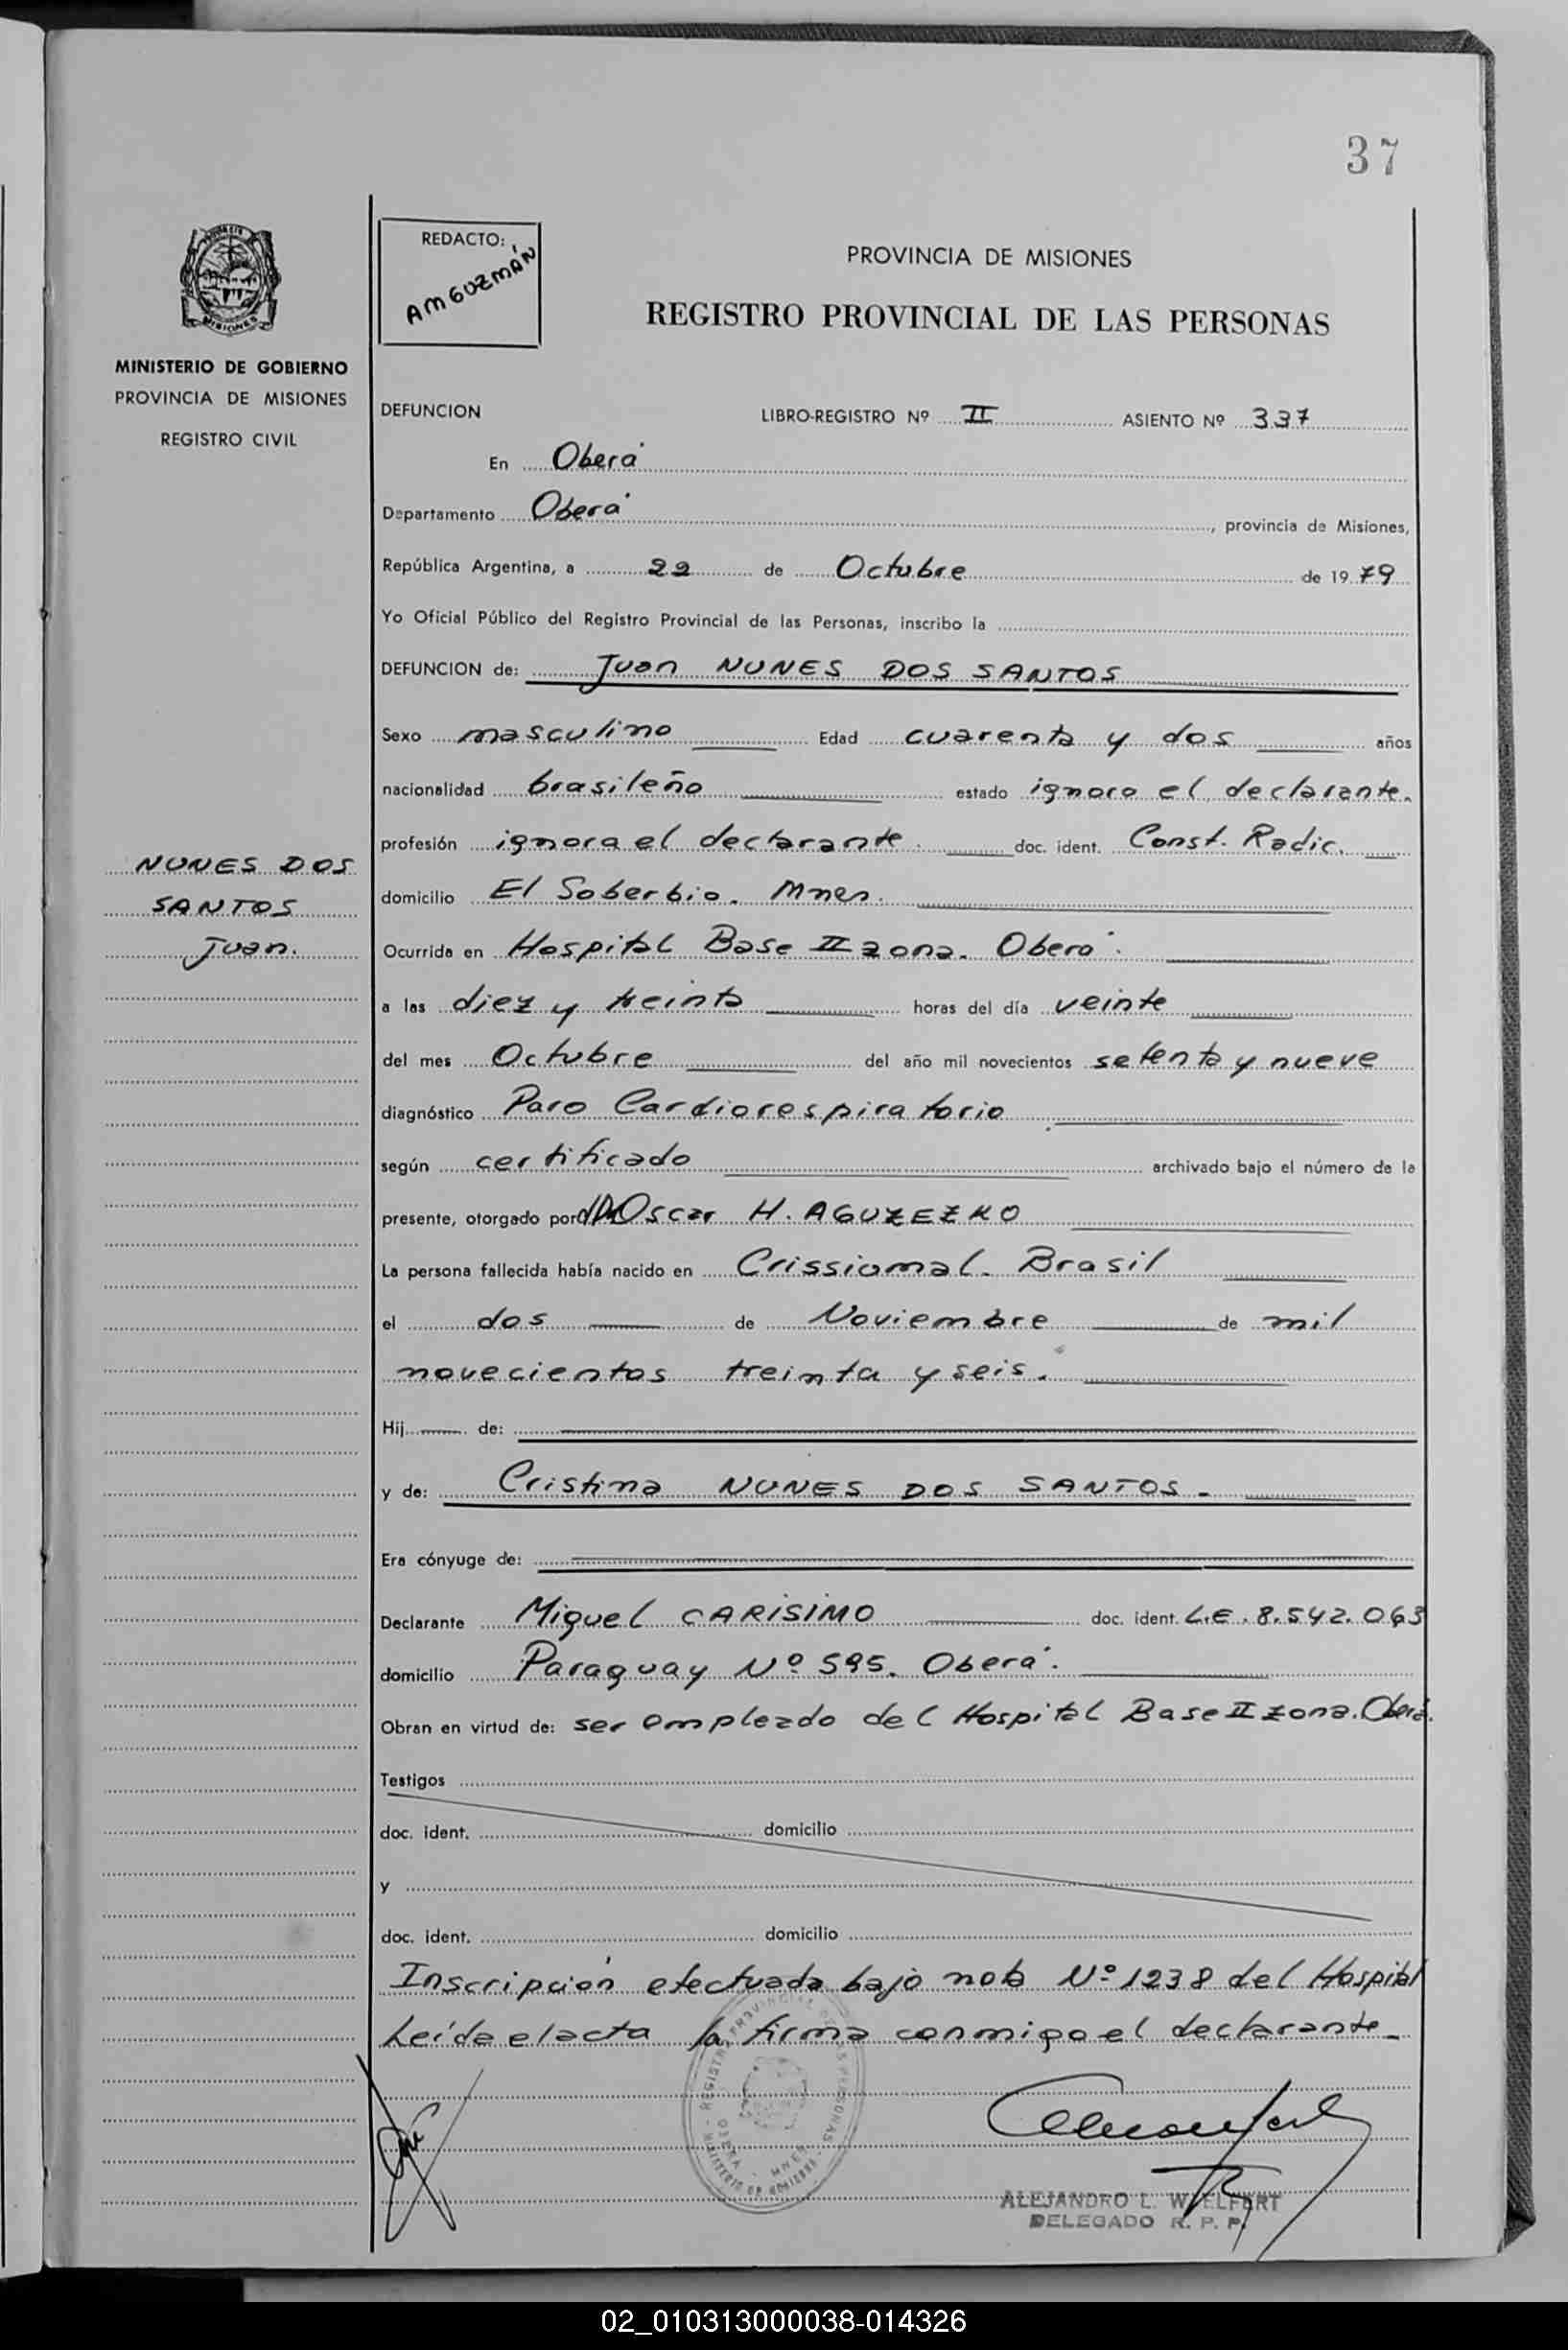 37
REDACTO:
AMGUZMÁN
PROVINCIA DE MISIONES
REGISTRO PROVINCIAL DE LAS PERSONAS
MISIONES
MINISTERIO DE GOBIERNO
PROVINCIA DE MISIONES
REGISTRO CIVIL
NUNES DOS
SANTOS
Juan.
DEFUNCION LIBRO-REGISTRO Nº II ASIENTO Nº 337
En Oberá
Departamento Oberá, provincia de Misiones,
República Argentina, a 22 de Octubre de 1979
Yo Oficial Público del Registro Provincial de las Personas, inscribo la
DEFUNCION de: Juan NUNES DOS SANTOS
Sexo masculino Edad cuarenta y dos años
nacionalidad brasileño estado ignora el declarante.
profesión ignora el declarante. doc. ident. Const. Radic.
domicilio El Soberbio. Mnes.
Ocurrida en Hospital Base II zona. Oberá.
a las diez y treinta horas del día veinte
del mes Octubre del año mil novecientos setenta y nueve
diagnóstico Paro Cardiorespiratorio
según certificado archivado bajo el número de la
presente, otorgado por Oscar H.
La persona fallecida había nacido en Crissiumal. Brasil
el dos de Noviembre de mil
novecientos treinta y seis.
Hij de:
y de: Cristina NUNES DOS SANTOS.
Era cónyuge de:
Declarante Miguel CARISIMO doc. ident. L.E. 8.542.063
domicilio Paraguay Nº 595. Oberá.
Obran en virtud de: ser empleado del Hospital Base II zona. Oberá.
Testigos
doc. ident. domicilio
y
doc. ident. domicilio
Inscripción efectuada bajo nota Nº 1238 del Hospital
Leída el acta la firma conmigo el declarante.
ALEJANDRO L. WELFERT
DELEGADO R. P. P.
02_010313000038-014326